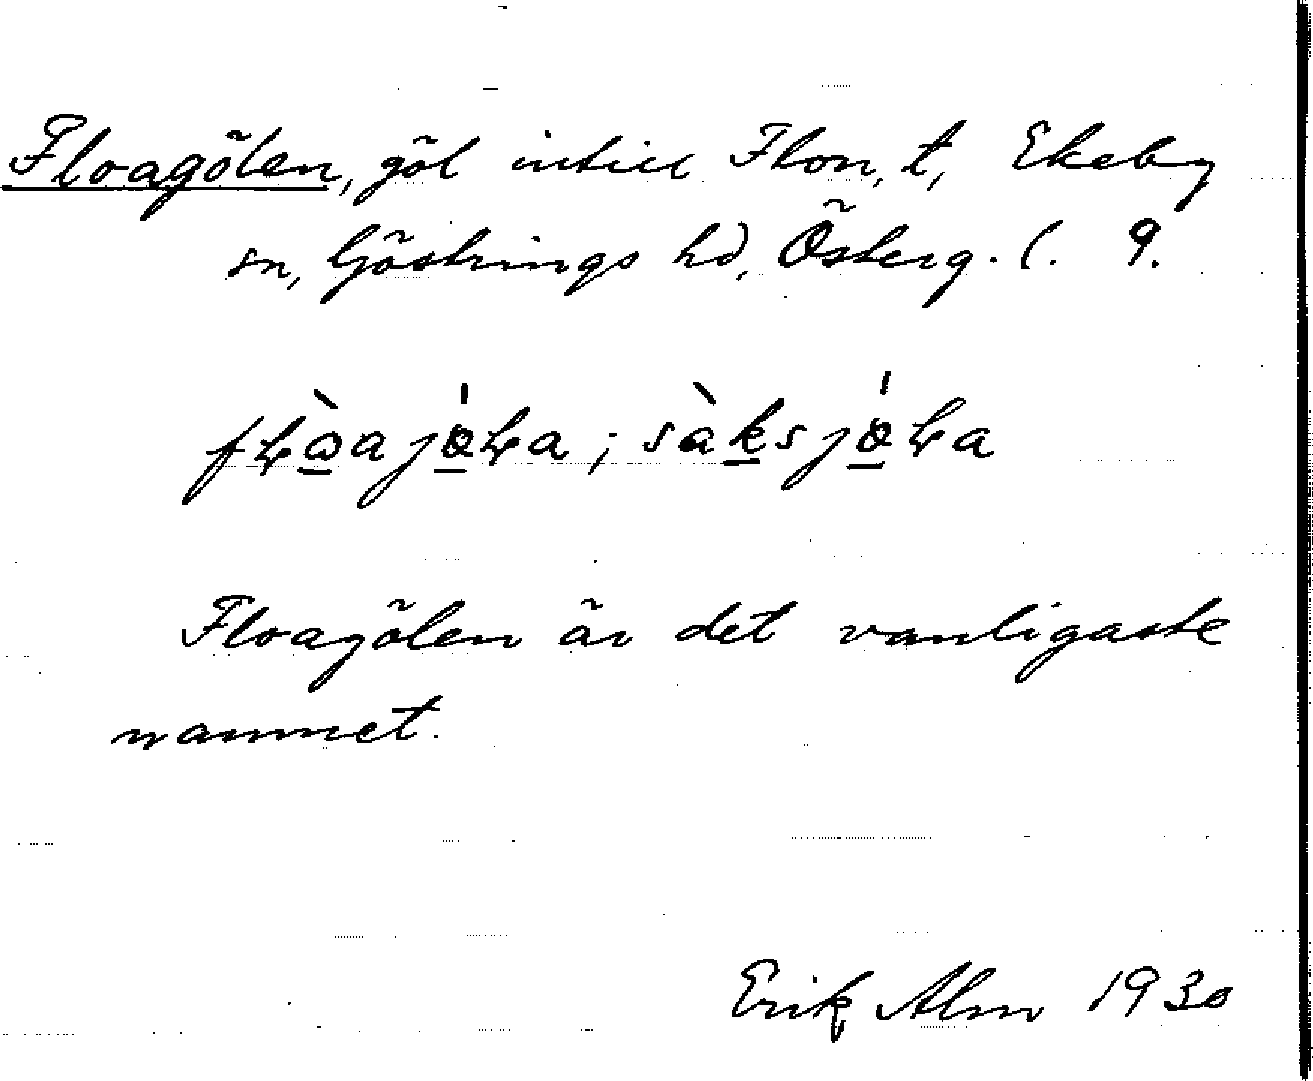 Floagölen, göl intill Flon, t, Ekeby
sn, Göstrings hd, Österg. l. 9.
fɫὼ̲ajö̲́ɫa; sàk̲sjö̲́ɫa
Floagölen är det vanligaste
namnet.
Erik Alm 1930